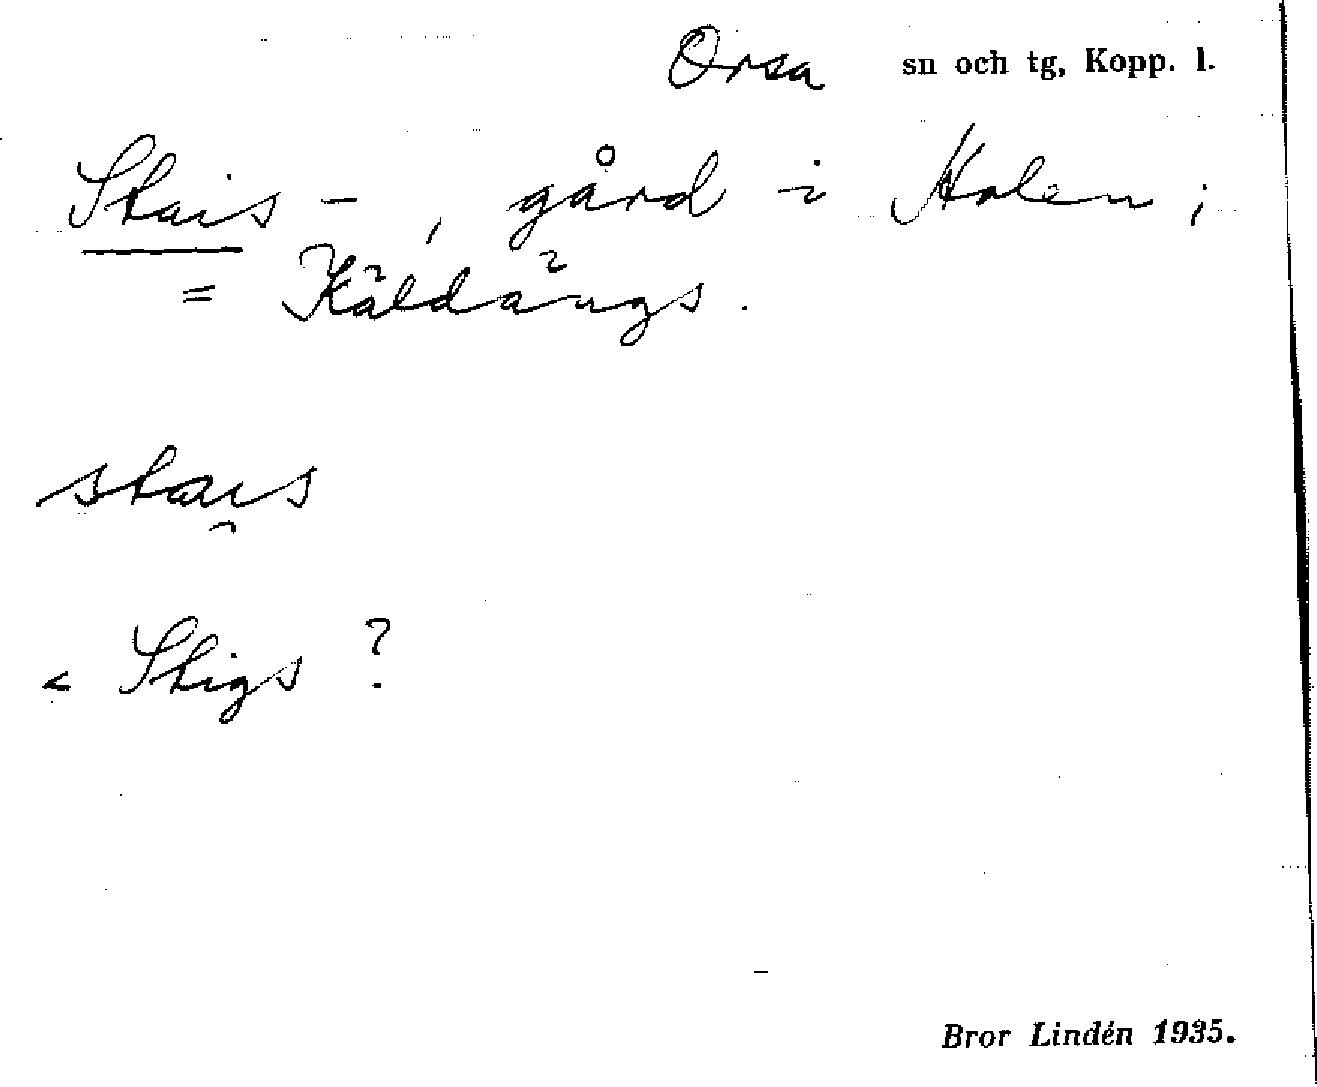 Orsa sn och tg, Kopp. l.
Stais - , gård i Holen ;
= Käldängs .
stai̯s
< Stigs ?
Bror Lindén 1935.